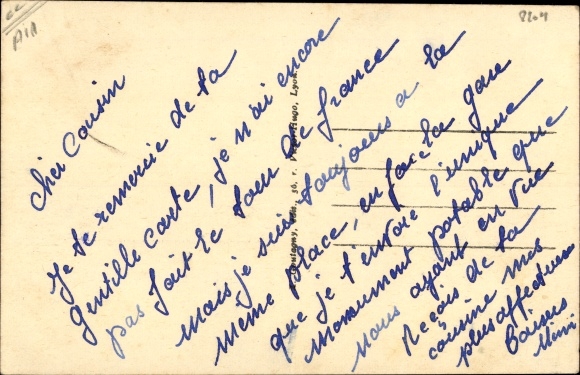 Cher Cousin
Je te remercie de ta
gentille carte, je n'ai encore
pas fait le tour de france
mais je suis toujours a la
même place, en face la gare
que je t'envoie l'unique
monument potable que
nous ayant en vue
Reçois de ta
cousine mes
plus affectueux
baisers
Mimi
8204
AIA
Lyon